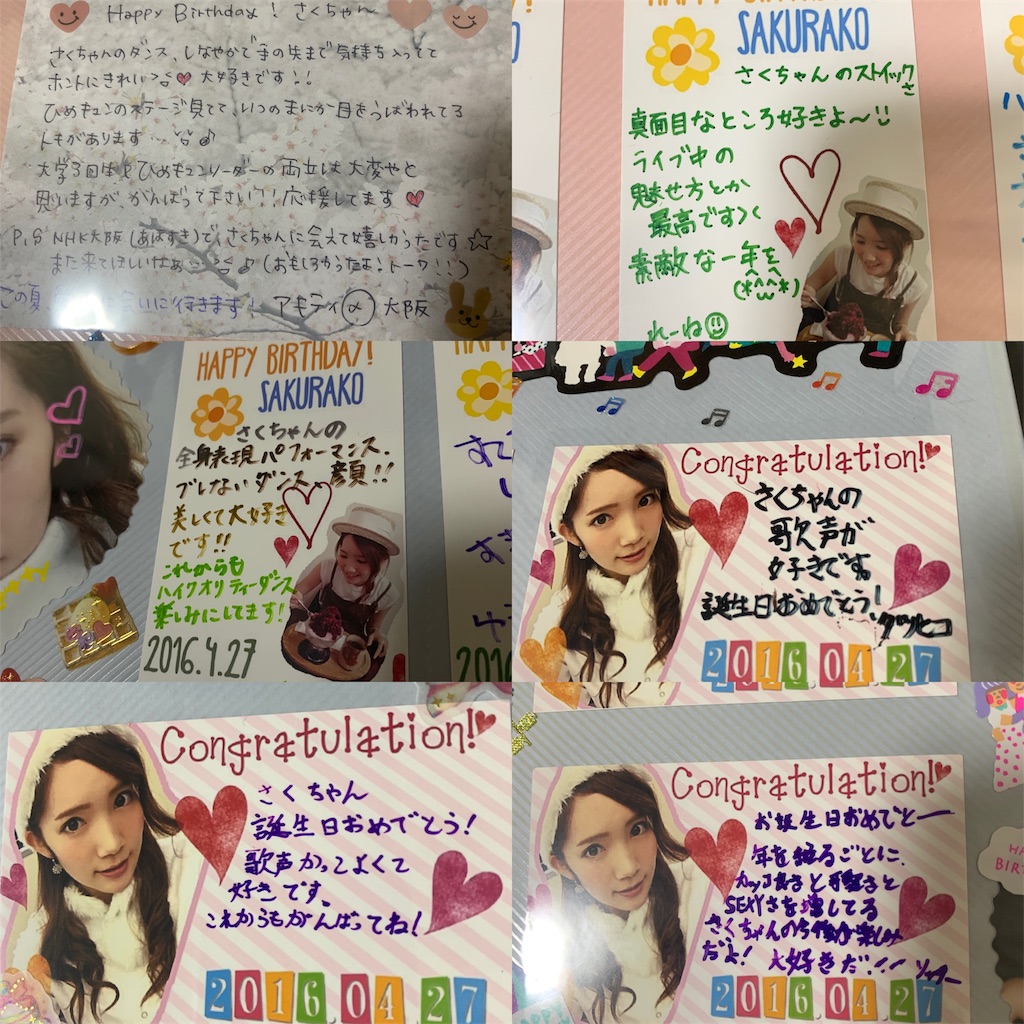 Happy Birthday! さくちゃん
さくちゃんのダンス、しなやかで手の先まで気持ち入ってて
ホントにきれい 大好きです!!
ひめキュンのステージ見てて、いつのまにか目をうばわれてる
トキがあります…♪
大学3回生とひめキュンリーダーの両立は大変やと
思いますが、がんばって下さい!!応援してます
P,S NHK大阪(あほすき)で、さくちゃんに会えて嬉しかったです☆
また来てほしいなぁ…♪(おもしろかったよ!トーク!!)
この夏、 会いに行きます! アキティ 大阪
HAPPY BIRTHDAY!
SAKURAKO
さくちゃんのストイックさ
真面目なところ好きよ〜!!
ライブ中の
魅せ方とか
最高です><
素敵な一年を
(*^ω^*)
れーね
HAPPY BIRTHDAY!
SAKURAKO
さくちゃんの
全身表現パフォーマンス、
ブレないダンス、顔!!
美しくて大好き
です!!
これからも
ハイクオリティーダンス
楽しみにしてます!
2016.4.27
Congratulation!
さくちゃんの
歌声が
好きです。
誕生日おめでとう!
2016.04.27
Congratulation!
さくちゃん
誕生日おめでとう!
歌声かっこよくて
好きです、
これからもがんばってね!
2016.04.27
Congratulation!
お誕生日おめでとー
年を経るごとに、
カッコ良さと可愛さと
SEXYさを増してる
さくちゃんの今後が楽しみ
だよ! 大好きだ!!
2016.04.27